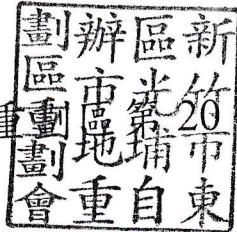 新竹市東
區光埔自
辦市地重
劃區重劃會
重劃區第20